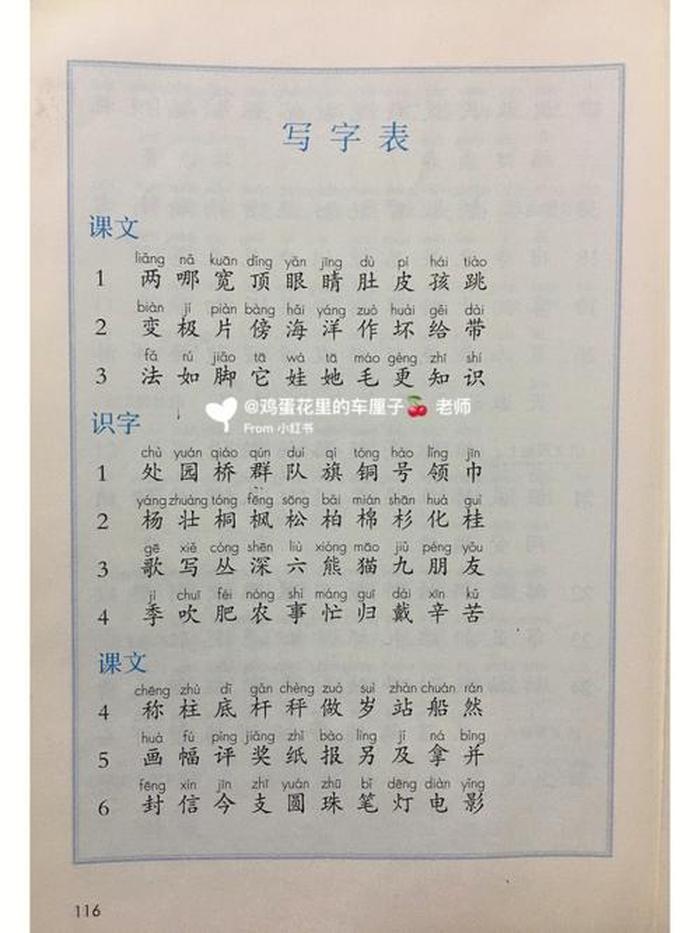 写字表
课文
liǎng nǎ kuān dǐng yǎn jīng dù pí hái tiào
1 两 哪 宽 顶 眼 睛 肚 皮 孩 跳
biàn jí piàn bàng hǎi yáng zuò huài gěi dài
2 变 极 片 傍 海 洋 作 坏 给 带
fǎ rú jiǎo tā wá tā máo gèng zhī shí
3 法 如 脚 它 娃 她 毛 更 知 识
@鸡蛋花里的车厘子🍒 老师
From 小红书
识字
chù yuán qiáo qún duì qí tóng hào lǐng jīn
1 处 园 桥 群 队 旗 铜 号 领 巾
yáng zhuàng tóng fēng sōng bǎi mián shān huà guì
2 杨 壮 桐 枫 松 柏 棉 杉 化 桂
gē xiě cóng shēn liù xióng māo jiǔ péng yǒu
3 歌 写 丛 深 六 熊 猫 九 朋 友
jì chuī féi nóng shì máng guī dài xīn kǔ
4 季 吹 肥 农 事 忙 归 戴 辛 苦
课文
chēng zhù dǐ gǎn chèng zuò suì zhàn chuán rán
4 称 柱 底 杆 秤 做 岁 站 船 然
huà fú píng jiǎng zhǐ bào lìng jí ná bìng
5 画 幅 评 奖 纸 报 另 及 拿 并
fēng xìn jīn zhī yuán zhū bǐ dēng diàn yǐng
6 封 信 今 支 圆 珠 笔 灯 电 影
116